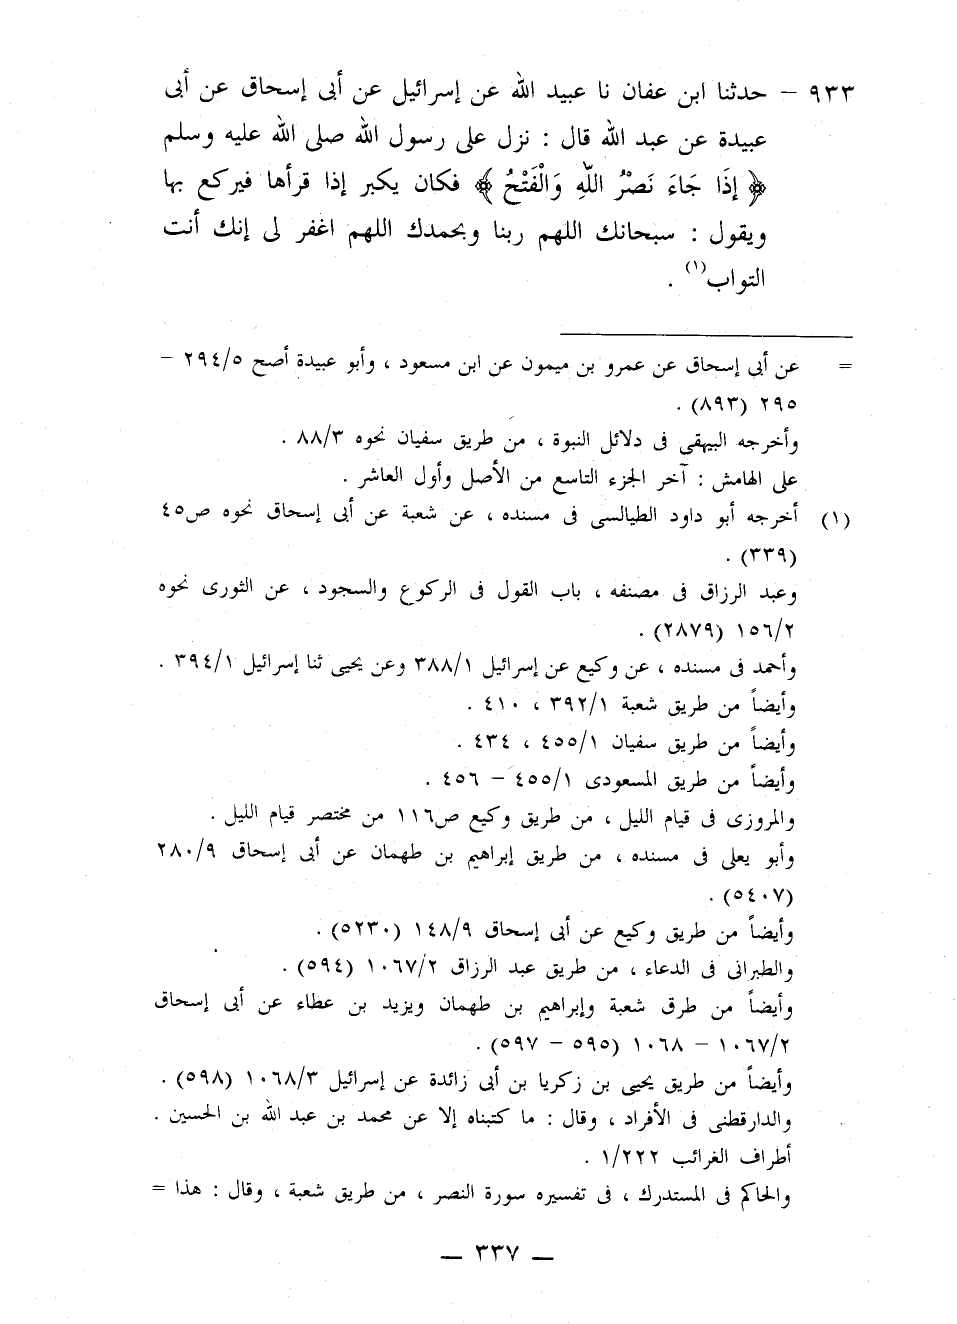 ٩٣٣ – حدثنا ابن عفان نا عبيد الله عن إسرائيل عن أبى إسحاق عن أبى
عبيدة عن عبد الله قال : نزل على رسول الله صلى الله عليه وسلم
﴿ إِذَا جَاءَ نَصْرُ اللَّهِ وَالْفَتْحُ ﴾ فكان يكبر إذا قرأها فيركع بها
ويقول : سبحانك اللهم ربنا وبحمدك اللهم اغفر لى إنك أنت
التواب(١) .
= عن أبى إسحاق عن عمرو بن ميمون عن ابن مسعود ، وأبو عبيدة أصح ٢٩٤/٥ –
٢٩٥ (٨٩٣) .
وأخرجه البيهقى فى دلائل النبوة ، من طريق سفيان نحوه ٨٨/٣ .
على الهامش : آخر الجزء التاسع من الأصل وأول العاشر .
(١) أخرجه أبو داود الطيالسى فى مسنده ، عن شعبة عن أبى إسحاق نحوه ص٤٥
(٣٣٩) .
وعبد الرزاق فى مصنفه ، باب القول فى الركوع والسجود ، عن الثورى نحوه
١٥٦/٢ (٢٨٧٩) .
وأحمد فى مسنده ، عن وكيع عن إسرائيل ٣٨٨/١ وعن يحيى ثنا إسرائيل ٣٩٤/١ .
وأيضاً من طريق شعبة ٣٩٢/١ ، ٤١٠ .
وأيضاً من طريق سفيان ٤٥٥/١ ، ٤٣٤ .
وأيضاً من طريق المسعودى ٤٥٥/١ – ٤٥٦ .
والمروزى فى قيام الليل ، من طريق وكيع ص١١٦ من مختصر قيام الليل .
وأبو يعلى فى مسنده ، من طريق إبراهيم بن طهمان عن أبى إسحاق ٢٨٠/٩
(٥٤٠٧) .
وأيضاً من طريق وكيع عن أبى إسحاق ١٤٨/٩ (٥٢٣٠) .
والطبرانى فى الدعاء ، من طريق عبد الرزاق ١٠٦٧/٢ (٥٩٤) .
وأيضاً من طرق شعبة وإبراهيم بن طهمان ويزيد بن عطاء عن أبى إسحاق
١٠٦٧/٢ – ١٠٦٨ (٥٩٥ – ٥٩٧) .
وأيضاً من طريق يحيى بن زكريا بن أبى زائدة عن إسرائيل ١٠٦٨/٣ (٥٩٨) .
والدارقطنى فى الأفراد ، وقال : ما كتبناه إلا عن محمد بن عبد الله بن الحسين .
أطراف الغرائب ١/٢٢٢ .
والحاكم فى المستدرك ، فى تفسيره سورة النصر ، من طريق شعبة ، وقال : هذا =
— ٣٣٧ —